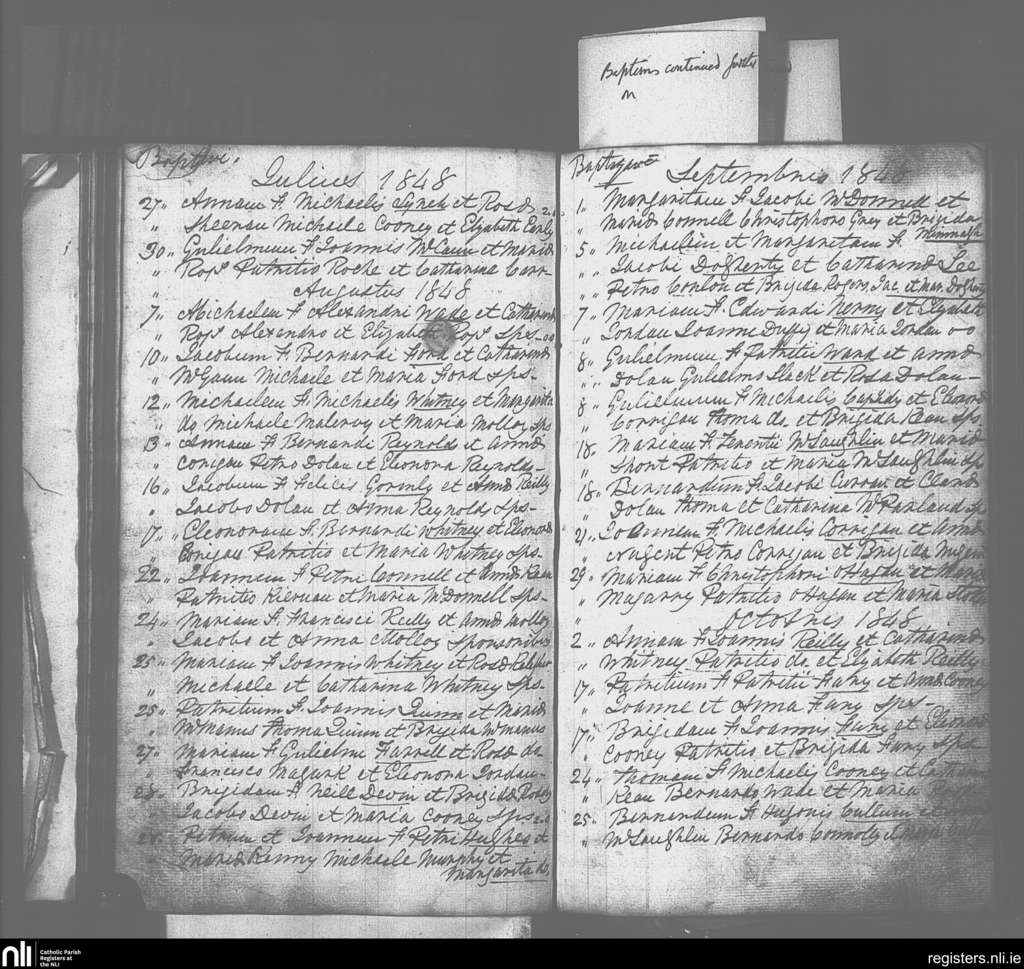 Baptisms continued further
on
Baptizavi.
Julius 1848
27 " Annam F. Michaelis Lynch et Rosæ
" Sheeran Michaele Cooney et Elizabeth Early
30 " Gulielmum F Joannis McCann et Mariæ
" Rops Patritio Roche et Catharina Carr
" Augustus 1848
7 " Michaelem F Alexandri Wade et Catharinæ
" Rops Alexandro et Elizabeth Rops Sps-
10 " Jacobum F Bernardi Ford et Catharinæ
" McGann Michaele et Maria Ford Sps-
12 " Michaelem F. Michaelis Whitney et Margarita
" do Michaele Maleroy et Maria Molloy Sps
13 " Annam F Bernardi Reynolds et Annæ
" Corigan Petro Dolan et Eleonora Reynolds-
16 " Jacobum F Felicis Gormly et Annæ Reilly
" Jacobo Dolan et Anna Reynolds Sps-
17 " Eleonoram F. Bernardi Whitney et Eleonoræ
" Corigan Patritio et Maria Whitney Sps-
22 " Joannem F Petri Connell et Annæ Kean
" Patritio Kiernan et Maria McDonnell Sps-
24 " Mariam F. Francisci Reilly et Annæ Molloy
Jacobo et Anna Molloy Sponsoribus
25 " Mariam F Joannis Whitney et Rosæ
" Michaele et Catharina Whitney Sps-
25 " Patritium F. Joannis Quinn et Mariæ
" McManus Thoma Quinn et Brigida McManus
27 " Mariam F Gulielmi Farrell et Rosæ do
" Francisco Magurk et Eleonora Jordan-
28 " Brigidam F. Neill Devin et Brigidæ Roddy
" Jacobo Devin et Maria Cooney Sps
28 " Petrum et Joannem F Petri Hughes et
" Mariæ Kenny Michaele Murphy et
Margarita do.
Baptizavi
Septembris 1848
1 " Margaritam F Jacobi McDonnell et
" Mariæ Connell Christophoro Grey et Brigida
Mimnagh
5 " Michaelem et Margaritam F.
" " Jacobi Dogherty et Catharinæ Lee
" " Petro Conlon et Brigida Rogers, Jac. et Mar. Dogherty
7 " Mariam F. Edwardi Nerny et Elizabeth
" Jordan Joanne Duffy et Maria Jordan
8 " Gulielmum F Patritii Ward et Annæ
" " Dolan Gulielmo Slack et Rosa Dolan-
8 " Gulielmum F Michaelis Cassidy et Eleonoræ
" Corrigan Thoma do. et Brigida Kean Sps.
18 " Mariam F. Terentii McLaughlin et Mariæ
" Short Patritio et Maria McLaughlin Sps
18 " Bernardum F. Jacobi Curran et
" Dolan Thoma et Catharina McParland Sps
21 " Joannem F. Michaelis Corrigan et Annæ
" Nugent Petro Corrigan et Brigida Nugent
29 " Mariam F Christophori O Hagan et Mariæ
" Magarry Patritio O Hagan et Maria
" Octobris 1848
2 " Annam F Joannis Reilly et Catharinæ
" Whitney Patritio do. et Elizabeth Reilly
17 " Patritium F Patritii Fany et Annæ Cooney
" Joanne et Anna Fany Sps-
17 " Brigidam F Joannis Fany et Eleonoræ
" Cooney Patritio et Brigida Fany Sps
24 " Thomam F Michaelis Cooney et
" Kean Bernardo Wade et Maria
25 " Bernardum F Hugonis Cullum et
" McLaughlin Bernardo Connolly et Maria
nli
Catholic Parish
Registers at
the NLI
registers.nli.ie